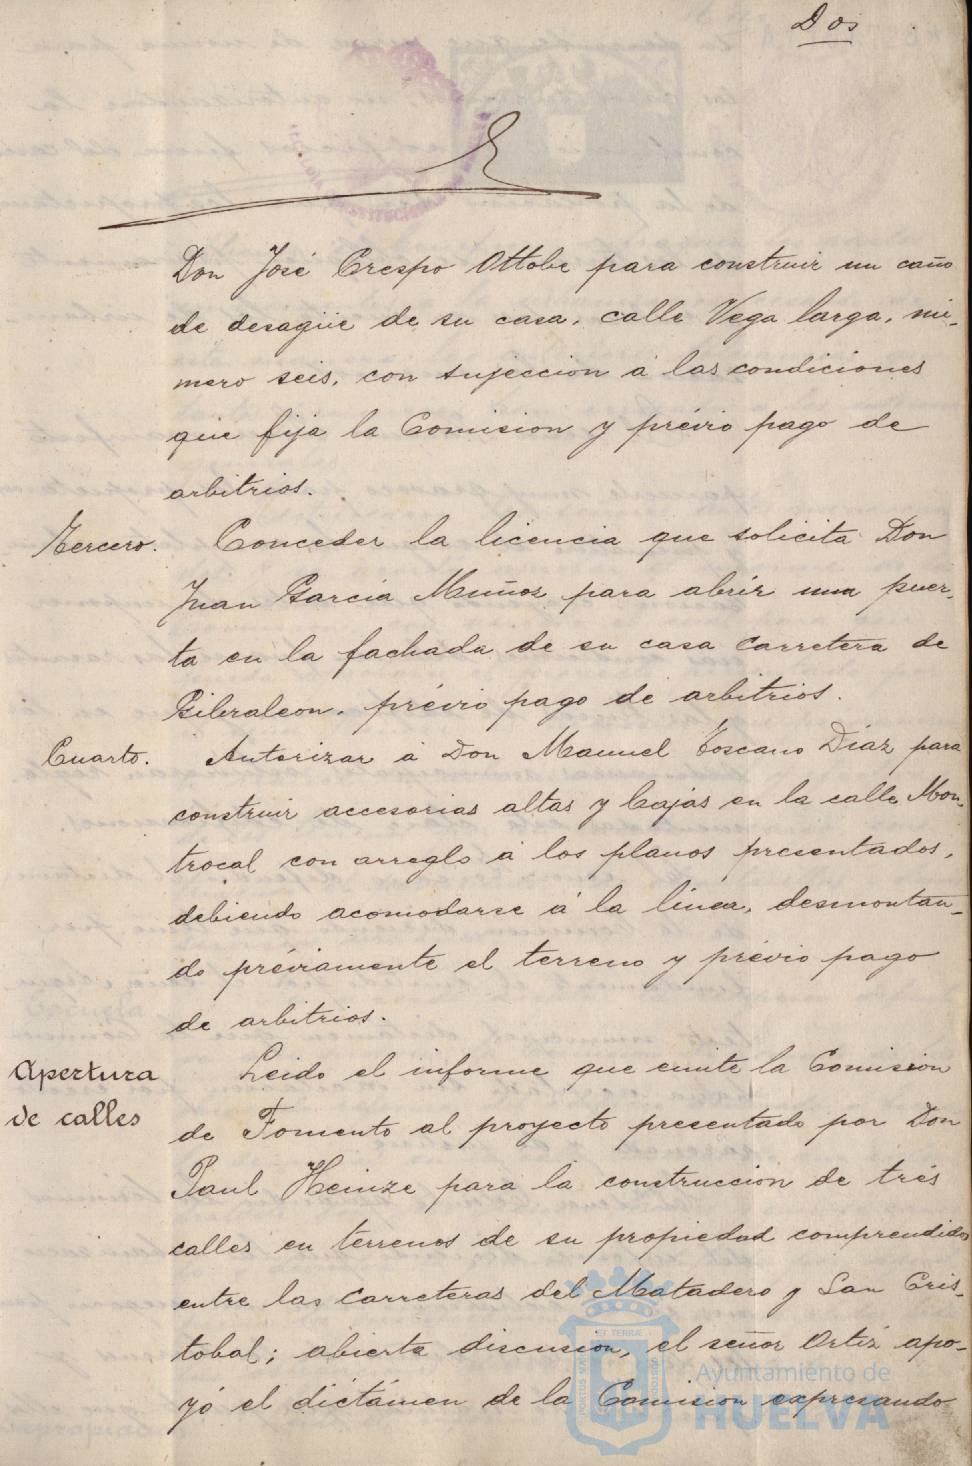 Dos
Don José Crespo Ottobe para construir un caño
de desagüe de su casa, calle Vega larga, nú-
mero seis, con sujeccion á las condiciones
que fija la Comision y prévio pago de
arbitrios.
Tercero. Conceder la licencia que solicita Don
Juan Garcia Muñoz para abrir una puer-
ta en la fachada de su casa carretera de
Gibraleon, prévio pago de arbitrios.
Cuarto. Autorizar á Don Manuel Toscano Diaz para
construir accesorias altas y bajas en la calle Mon-
trocal con arreglo á los planos presentados,
debiendo acomodarse á la línea, desmontan-
do préviamente el terreno y prévio pago
de arbitrios.
Apertura de calles
Leido el informe que emite la Comision
de Fomento al proyecto presentado por Don
Paul Heinze para la construccion de tres
calles en terrenos de su propiedad comprendidos
entre las carreteras del Matadero y San Cris-
tobal; abierta discusion, el señor Ortiz apo-
yó el dictámen de la Comision expresando
Ayuntamiento de
HUELVA